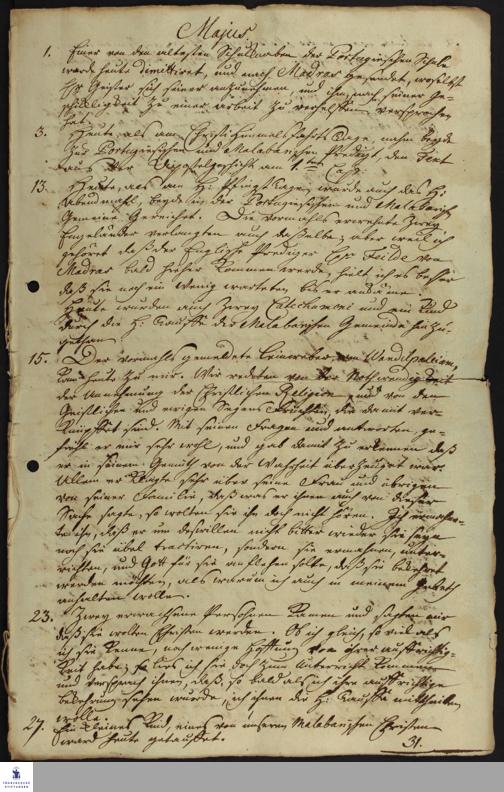 Majus
1. Einer von den ältesten Schulknaben der Portugiesischen Schule
wurde heute dimittiret, und nach Madras gesendet, woselbst
Hr Geister sich seiner anzunehmen, und ihm, nach seiner Ge-
schicklichkeit zu einer arbeit zu verhelfen, versprochen
hat.
3. Heute, als am Christi Himmelfahrts Tage, nahm beyde
zur Portugiesischen und Malabarischen Predigt, den Text
aus der Apostelgeschicht am 1ten Cap:
13. Heute, als am H: Pfingst Tage, wurde auch das H:
Abendmahl, beyde in der Portugiesischen und Malabarisch
Gemeine gereichet. Die vormahls erwehnte zwey
Engeländer verlangten auch dasselbe; aber weil ich
gehöret daß der Englische Prediger Hr Feilde von
Madras bald hieher kommen werde, hielt ich es besser
daß sie noch ein wenig warteten bis er ankäme.
Heute wurden auch zwey Catechumeni und ein Kind
durch die H: Tauffe der Malabarischen Gemeinde hinzu-
gethan.
15. Der vormahls gemeldete Leinweber, von Wandipaleiam,
kam heute zu mir. Wir redeten von der Nothwendigkeit
der Annehmung der Christlichen Religion, und von den
Geistlichen und ewigen Segens Früchten, die damit ver-
knüpfft sind. Mit seinen Fragen und antworten, ge-
fiehl er mir sehr wohl, und gab damit zu erkennen daß
er in seinem Gemüth von der Wahrheit überzeuget war.
Allein er klagte sehr über seine Frau und übrigen
von seiner Familie, daß was er ihnen auch von dieser
Sache sagte, so wolten sie ihn doch nicht hören. Ich ermahne-
te ihn, daß er um deswillen nicht bitter wieder sie seyn
noch sie übel tractiren, sondern sie ermahnen, unter-
richten, und Gott für sie anflehen solte, daß sie bekehret
werden möchten, als warum ich auch in meinem Gebeth
anhalten wolle.
23. Zwey erwachsene Personen kamen und sagten mir
daß sie wolten Christen werden. Ob ich gleich, so viel als
ich sie kenne, noch wenige Hoffnung von ihrer aufrichtig-
keit habe; so ließ ich sie doch zum Unterricht kommen
und versprach ihnen, daß, so bald als ich ihre auffrichtige
Bekehrung sehen würde, ich ihnen die H: Tauffe mittheilen
wolle.
27. Ein kleines Kind, eines von unsern Malabarischen Christen
ward heute getauffet.
31.
FRANCKESCHE
STIFTUNGEN